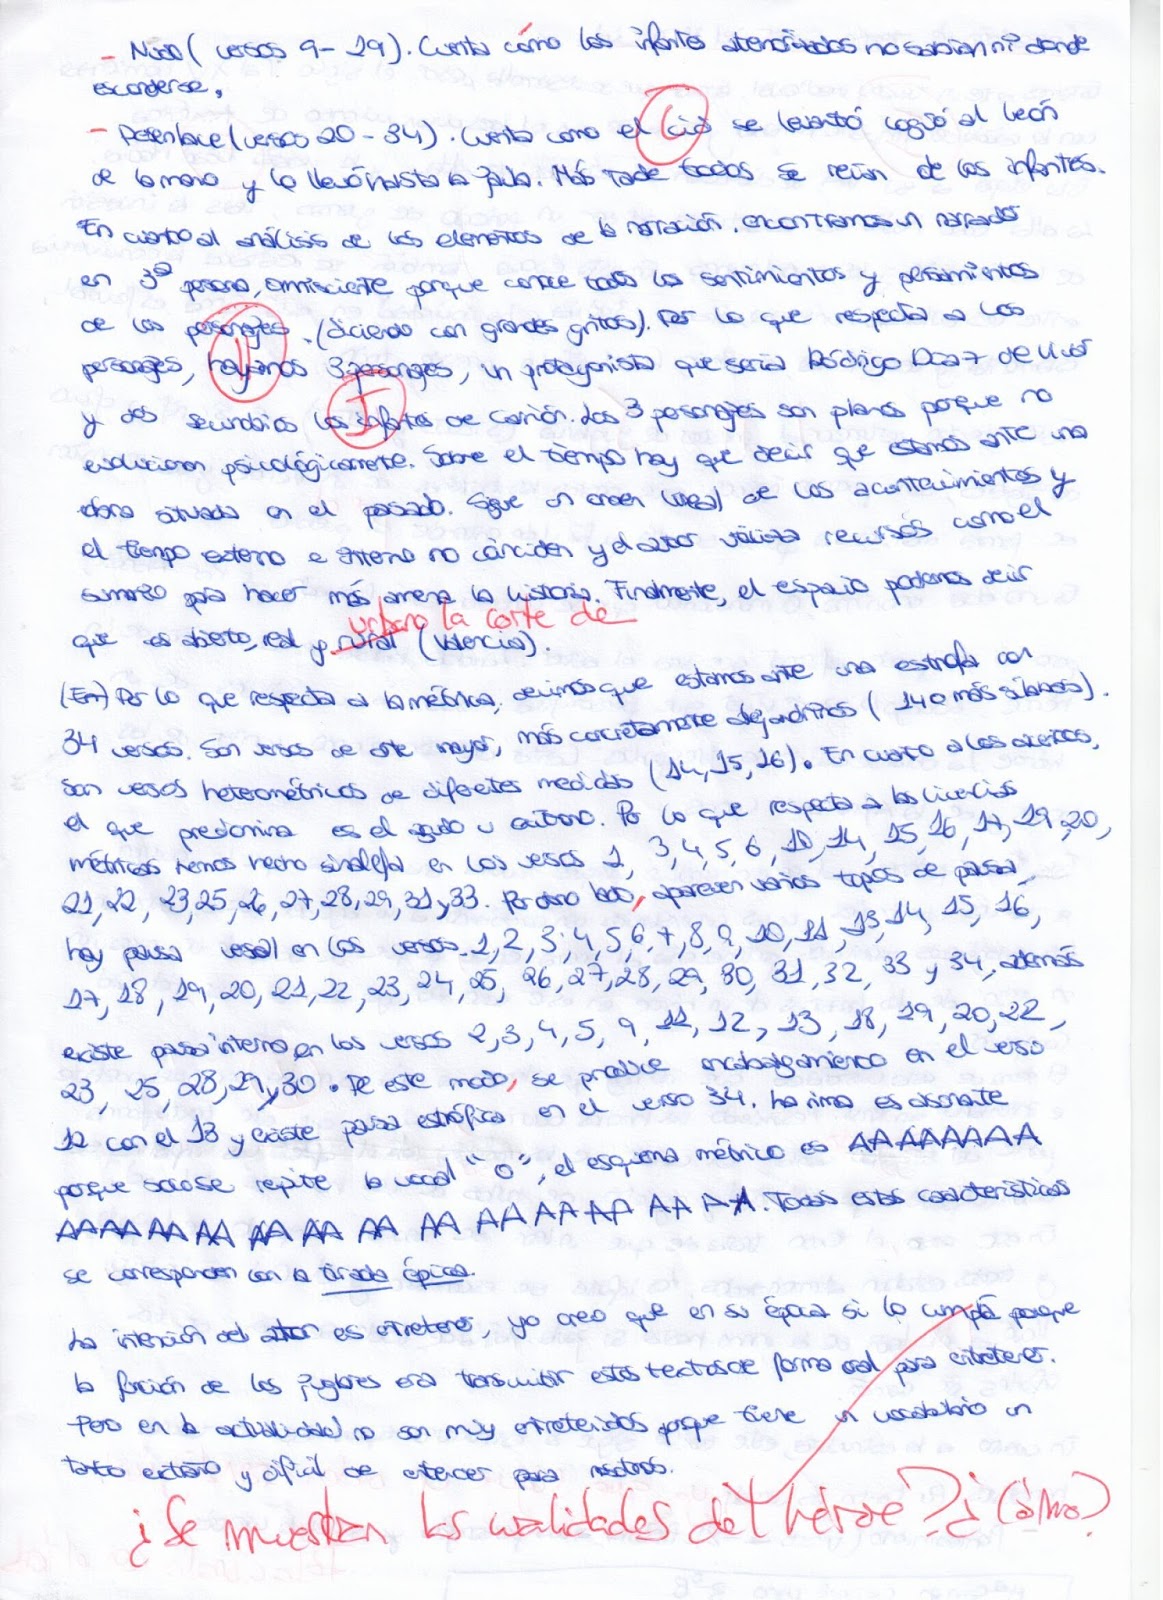 - Nudo (versos 9-19). Cuenta cómo los infantes atemorizados no sabían ni donde
esconderse.
- Desenlace (versos 20-34). Cuenta como el Cid se levantó cogió al león
de la mano y lo llevó hasta la jaula. Más tarde todos se reían de los infantes.
En cuanto al análisis de los elementos de la narración, encontramos un narrador
en 3ª persona, omnisciente porque conoce todos los sentimientos y pensamientos
de los personajes. (diciendo con grandes gritos). Por lo que respecta a los
personajes, hayamos 3 personajes, un protagonista que sería Rodrigo Díaz de Vivar
ll
y dos secundarios los infantes de Carrión. Los 3 personajes son planos porque no
I
evolucionan psicológicamente. Sobre el tiempo hay que decir que estamos ante una
obra situada en el pasado. Sigue un orden lineal de los acontecimientos y
el tiempo externo e interno no coinciden y el autor utiliza recursos como el
sumario para hacer más amena la historia. Finalmente, el espacio podemos decir
urbano la corte de
que es abierto, real y rural (Valencia).
(Em) Por lo que respecta a la métrica, decimos que estamos ante una estrofa con
34 versos. Son versos de arte mayor, más concretamente alejandrinos (14 o más sílabas).
Son versos heterométricos de diferentes medidas (14, 15, 16). En cuanto a los acentos,
el que predomina es el agudo u oxítono. Por lo que respecta a las licencias
métricas hemos hecho sinalefa en los versos 1, 3, 4, 5, 6, 10, 14, 15, 16, 17, 19, 20,
21, 22, 23, 25, 26, 27, 28, 29, 31 y 33. Por otro lado, aparecen varios tipos de pausa,
hay pausa versal en los versos 1, 2, 3, 4, 5, 6, 7, 8, 9, 10, 11, 13, 14, 15, 16,
17, 18, 19, 20, 21, 22, 23, 24, 25, 26, 27, 28, 29, 30, 31, 32, 33 y 34, además
existe pausa interna en los versos 2, 3, 4, 5, 9, 11, 12, 13, 18, 19, 20, 22,
23, 25, 28, 29 y 30. De este modo, se produce encabalgamiento en el verso
12 con el 13 y existe pausa estrófica en el verso 34. La rima es asonante
porque solo se repite la vocal "o", el esquema métrico es AAAAAAAA
AAAA AA AA AA AA AA AA AA AA AA AA A A. Todas estas características
se corresponden con la tirada épica.
La intención del autor es entretener, yo creo que en su época si lo cumplía porque
la función de los juglares era transmitir estos textos de forma oral para entretener.
Pero en la actualidad no son muy entretenidos porque tiene un vocabulario un
tanto extraño y difícil de entender para nosotros.
¿Se muestran las cualidades del héroe? ¿Cómo?